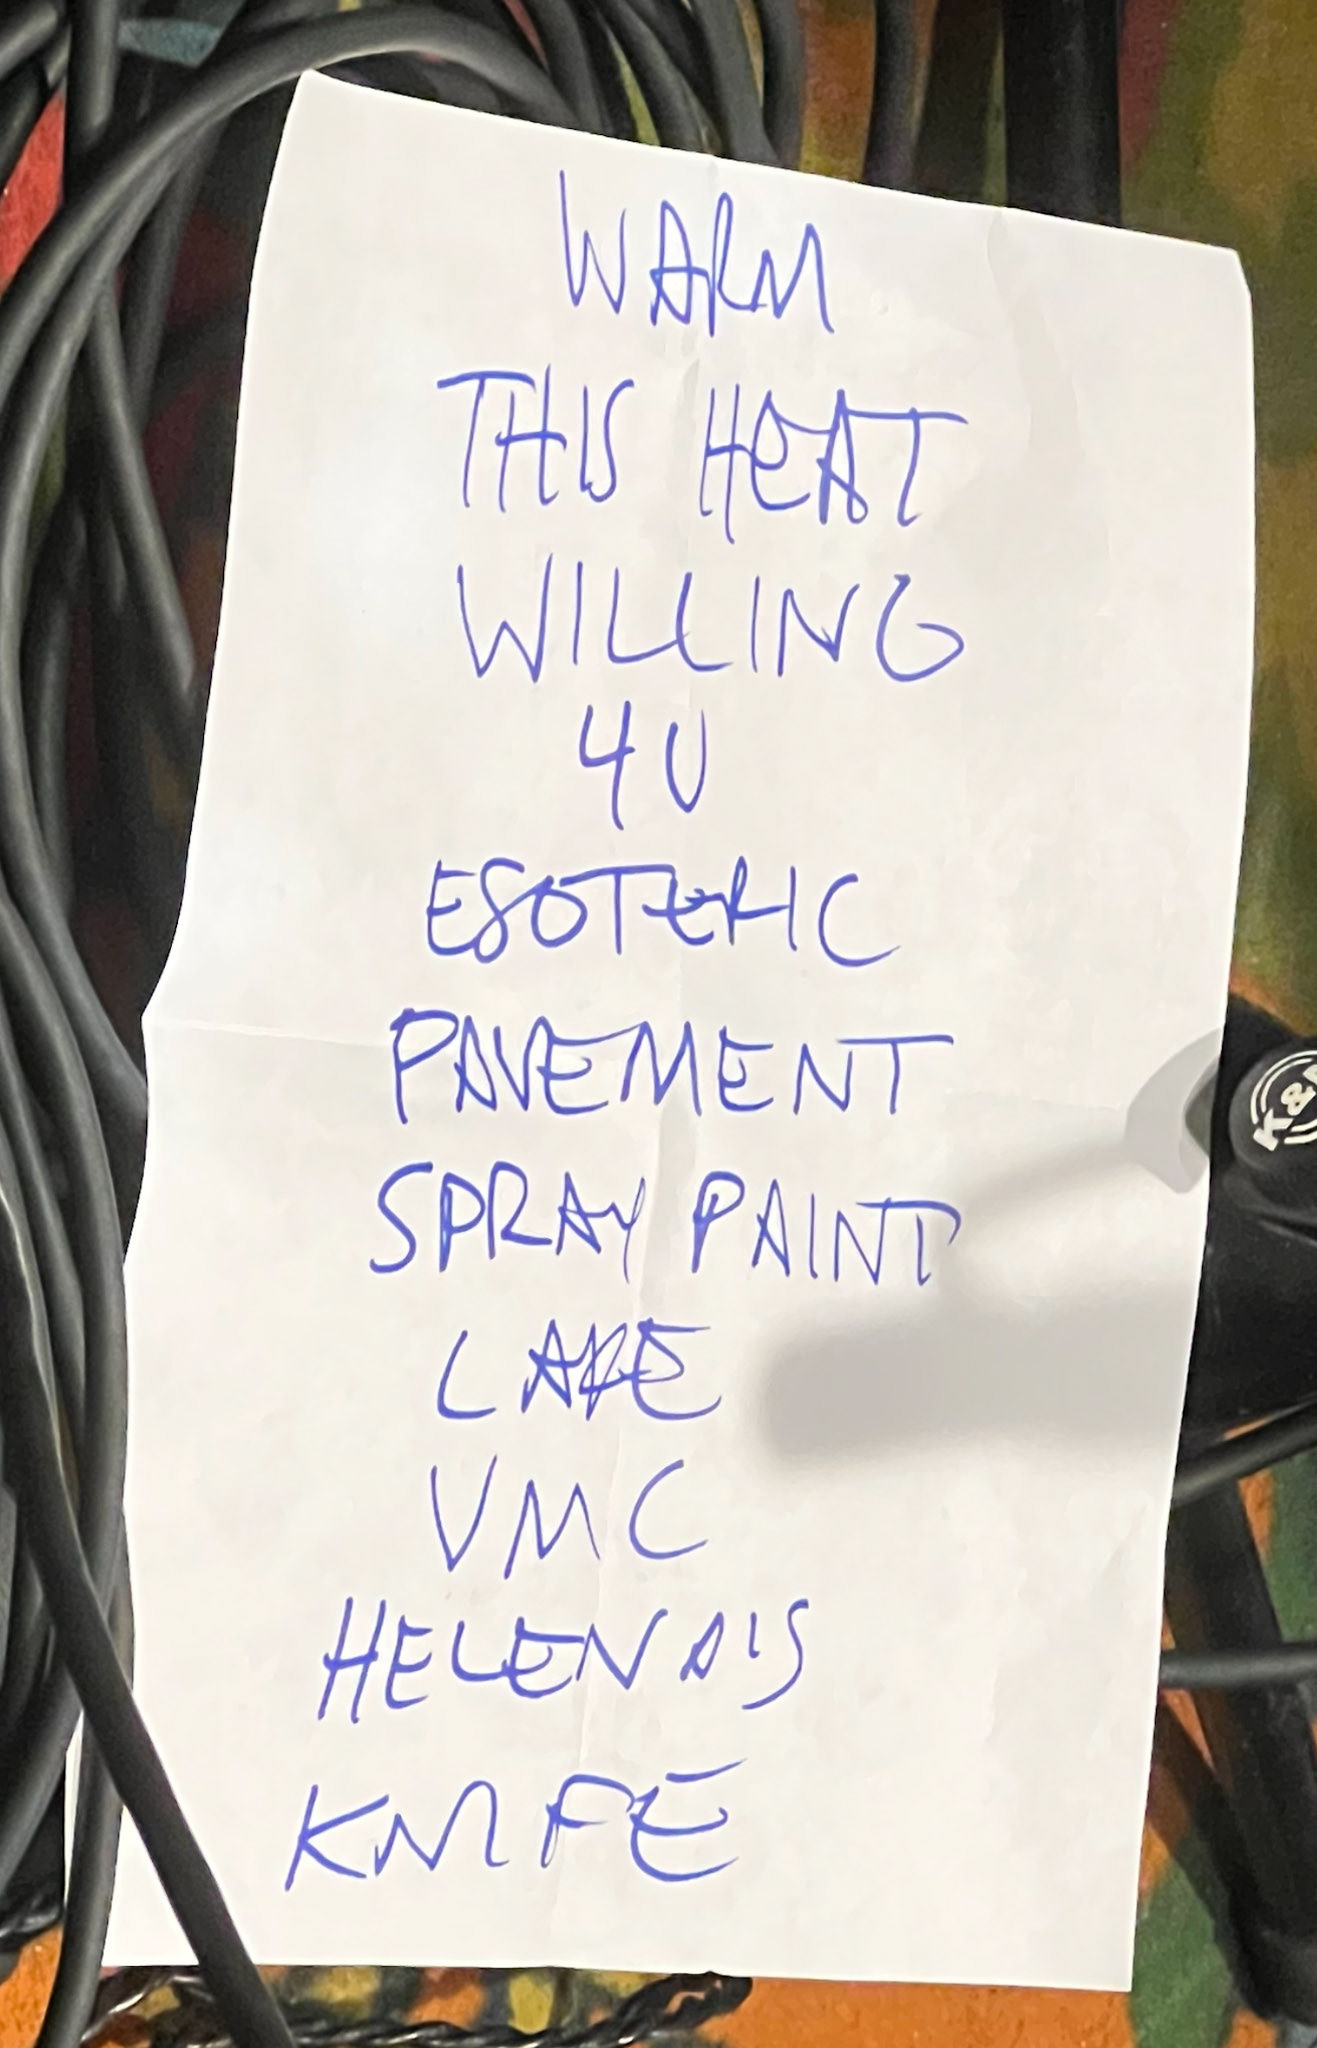 WARM
THIS HEAT
WILLING
4U
ESOTERIC
PAVEMENT
SPRAY PAINT
VMC
HELENA'S
KNIFE
K&M